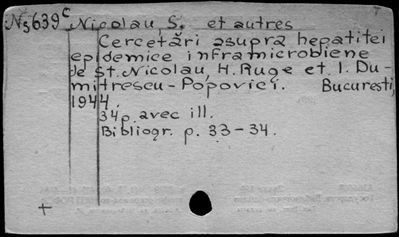 N₅639ᶜ Nicolau, S. et autres
Cercetări asupra hepatitei
epidemice inframicrobiene
de St. Nicolau, H. Ruge et I. Du-
mitrescu-Popovici. Bucuresti,
1944.
34p. avec ill.
Bibliogr. p. 33-34.